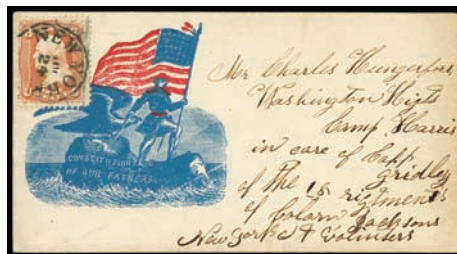 NEW YORK
24
CONSTITUTION
OF OUR FATHERS
Mr Charles Hungerford,
Washington Higts
Camp Harris
in care of Capp
gridley
of the 18 rigtments
of Colarn Jacksons
New York St Volinters